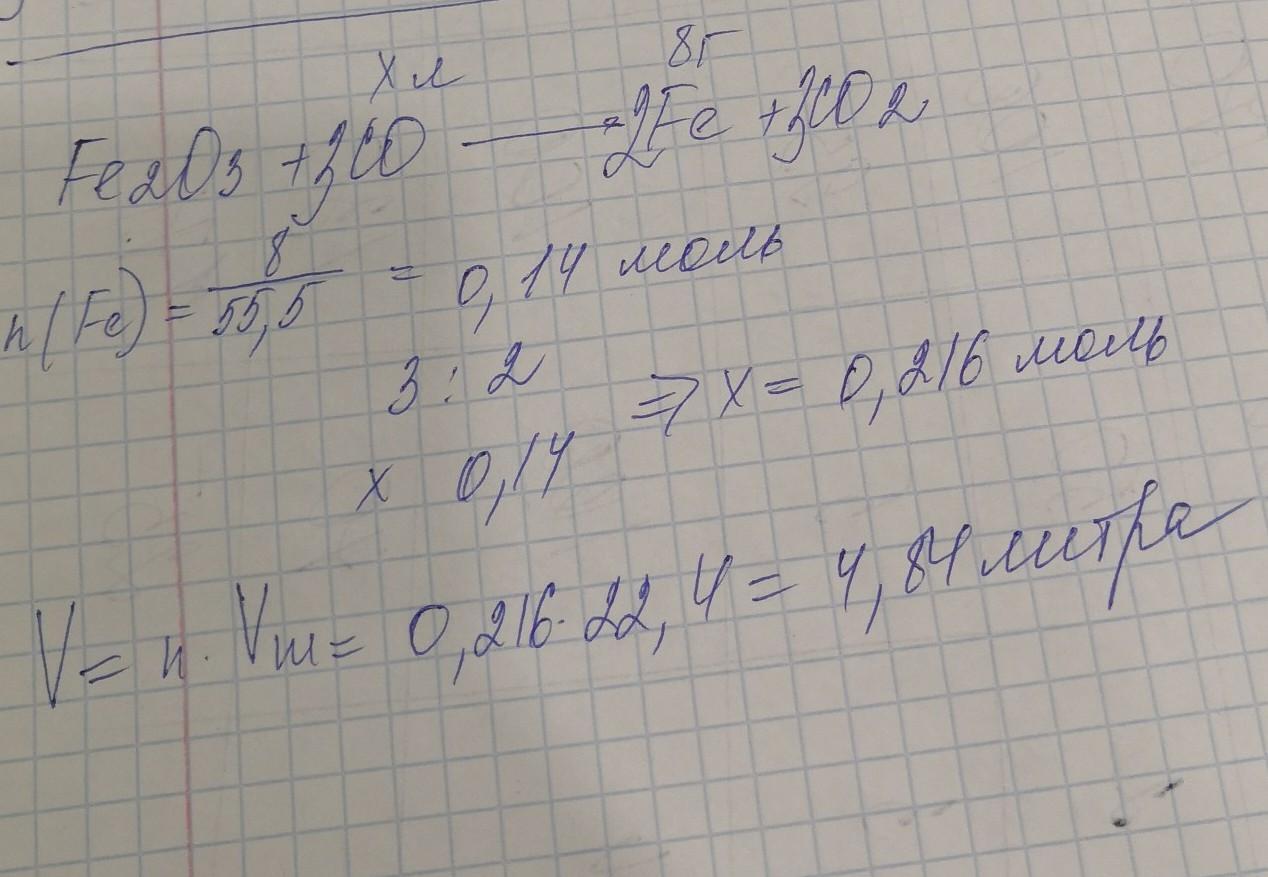 х л 8г
Fe2O3 + 3CO → 2Fe + 3CO2
n(Fe) = 8/55,5 = 0,14 моль
3 : 2
⇒ x = 0,216 моль
x 0,14
V = n · Vm = 0,216 · 22,4 = 4,84 литра